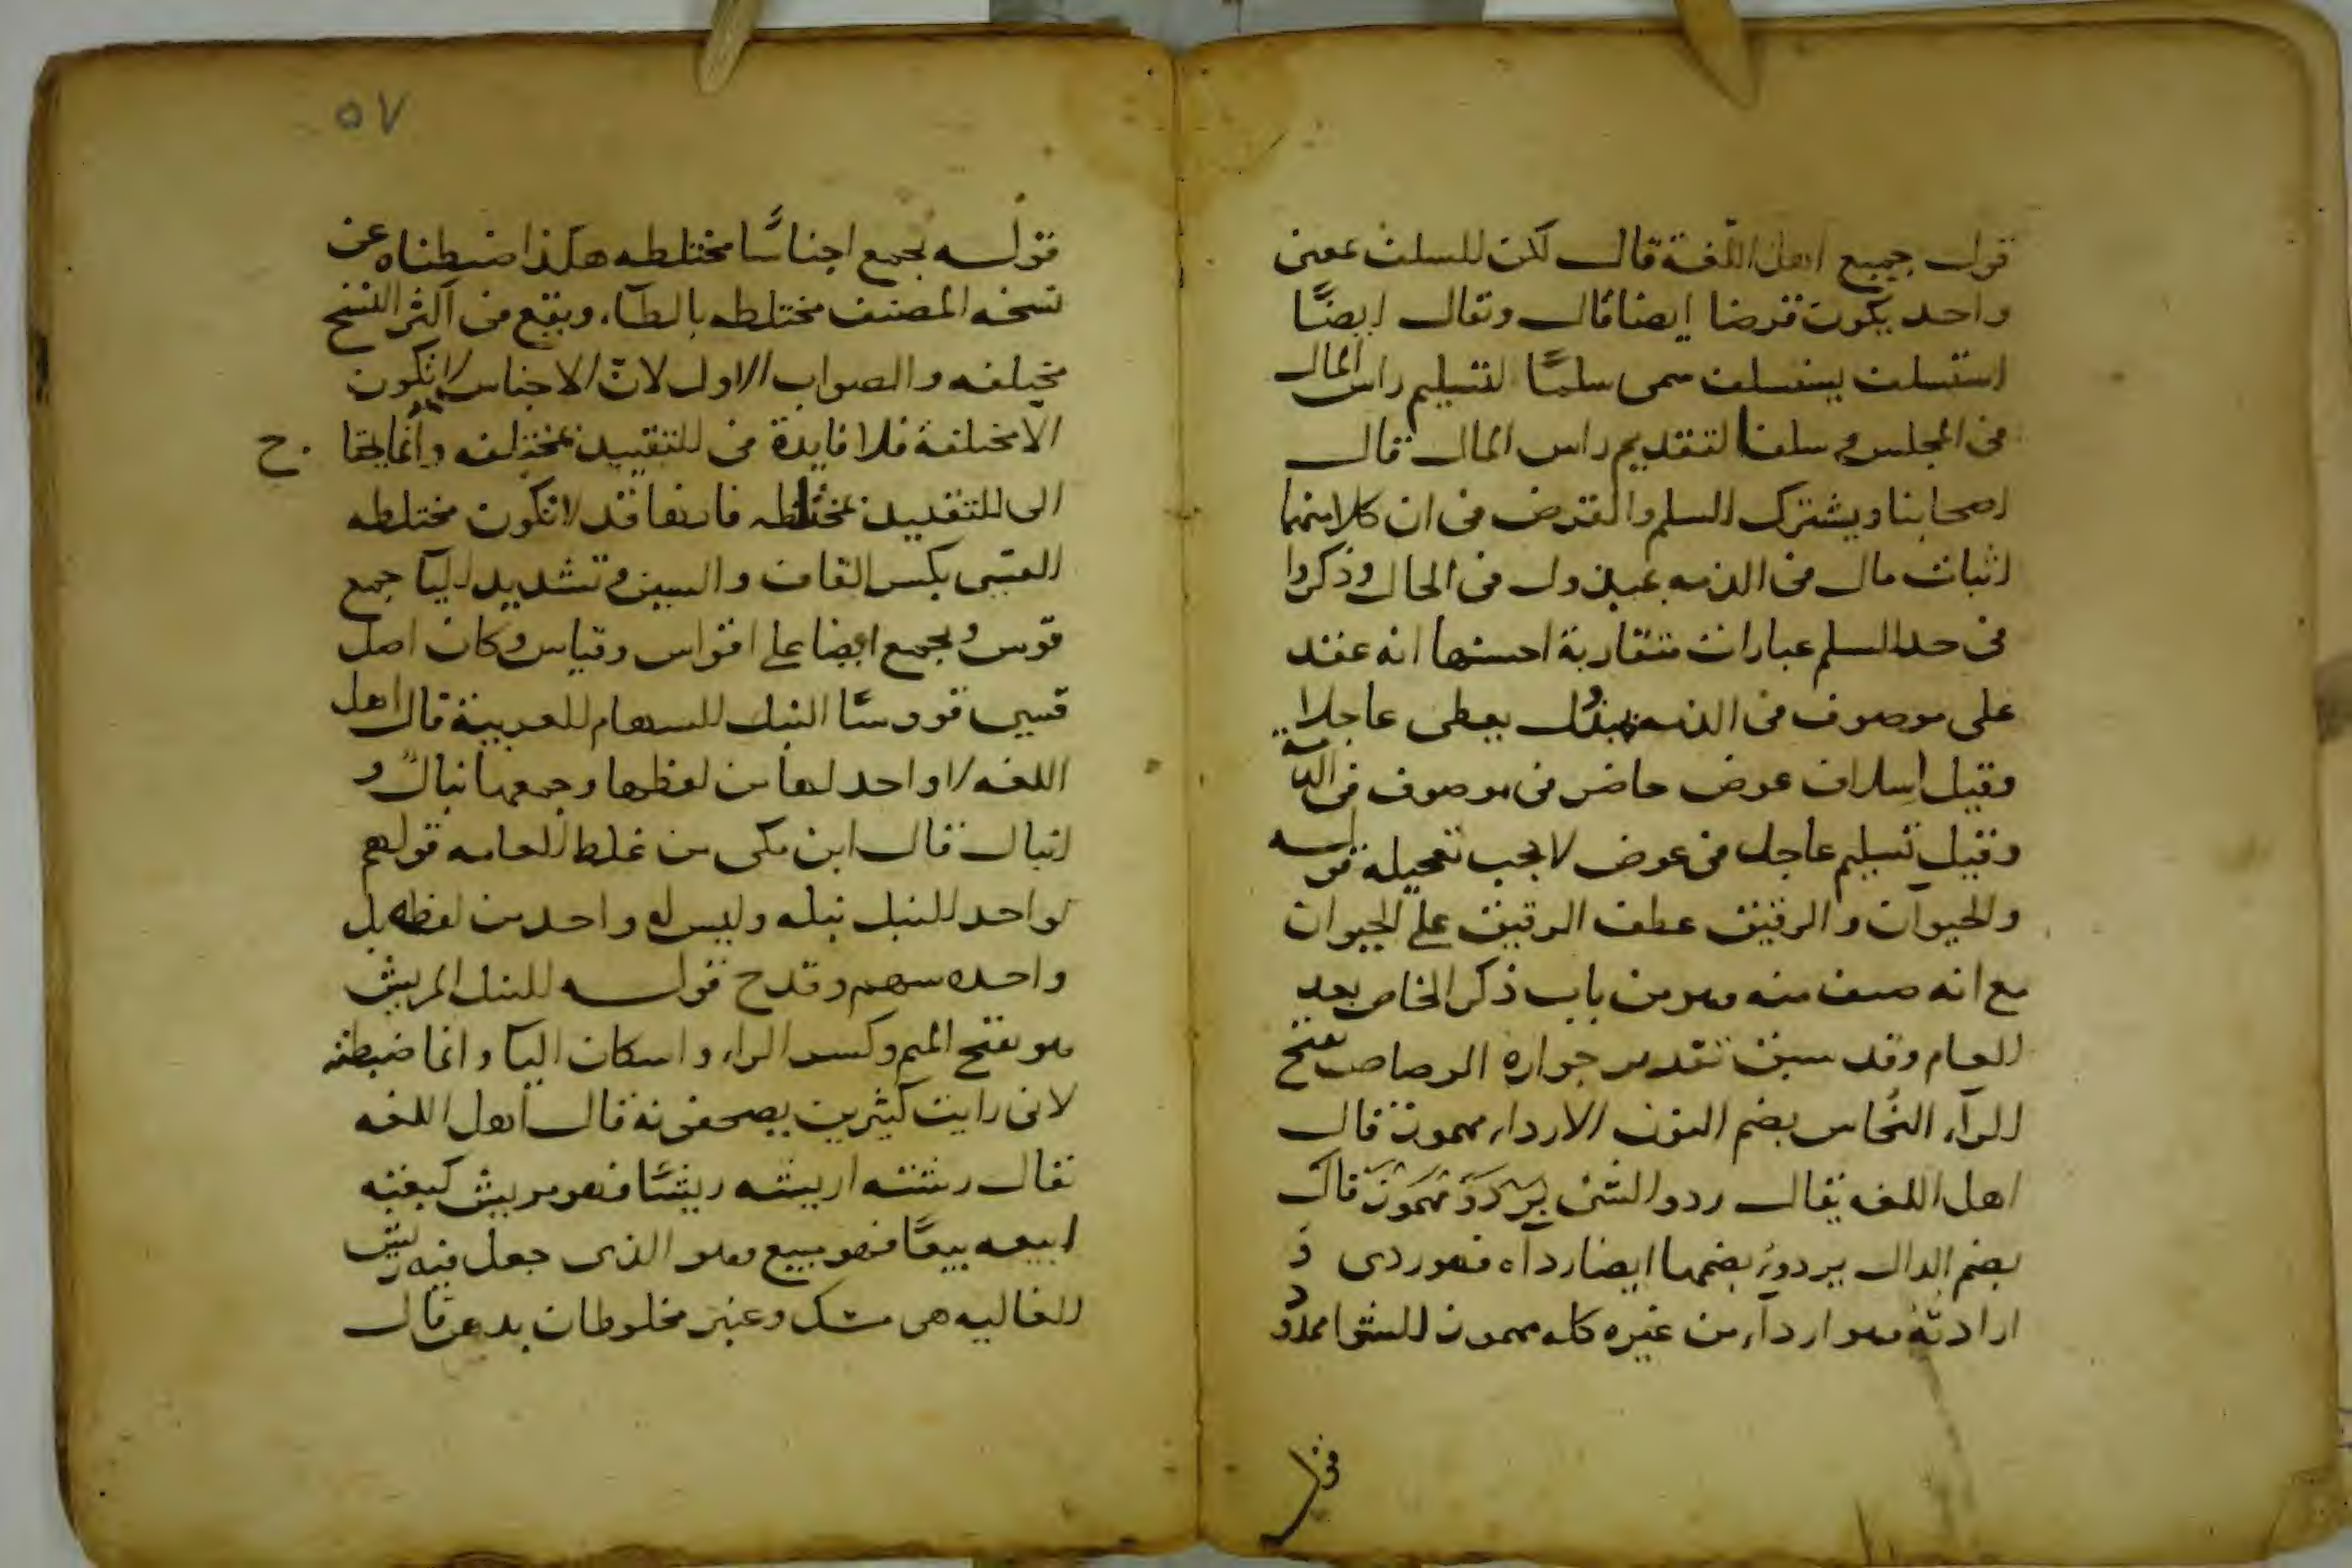 قول جميع اهل اللغة قال لكن للسلف معنى
واحد يكون قرضا ايضا قال ويقال ايضًا
استسلف يستسلف سمى سلمًا لتسليم راس المال
فى المجلس وسلفا لتقديم راس المال قال
اصحابنا ويشترك السلم والقرض فى ان كلا منهما
اثبات مال فى الذمه بمبذول فى الحال وذكروا
فى حد السلم عبارات متقاربة احسنها انه عقد
على موصوف فى الذمه ببذل يعطى عاجلا
وقيل اسلاف عوض حاضر فى موصوف فى الذمة
وقيل تسليم عاجل فى عوض لا يجب تعجيله قوله
والحيوان والرقيق عطف الرقيق على الحيوان
مع انه صنف منه وهو من باب ذكر الخاص بعد
العام وقد سبق تقدير جوازه الرصاص بفتح
الرآء النُحاس بضم النون الاردا مهموز قال
اهل اللغه يقال ردو الشى يردؤ مهموز قال
بضم الدال يردوء بضمها ايضا رداه فهو ردى و
اردأته وهو اردآء من غيره كله مهموز الشوا ممدود
فى
٥٧
قوله يجمع اجناسًا مختلطه هكذا ضبطناه عن
نسخه المصنف مختلطه بالطآء ويقع فى اكثر النسخ
مختلفه والصواب الاول لانّ الاجناس لا تكون
الا مختلفة فلا فايدة فى التقييد بمختلفه وانما يحتا ج
الى التقييد بمختلطه فانها قد لا تكون مختلطه
القسى بكسر القاف والسين وتشديد اليآ جمع
قوس ويجمع ايضا على اقواس وقياس وكان اصل
قسى قووسًا النبل السهام العربية قال اهل
اللغه لا واحد لها من لفظها وجمعها نبالٌ و
انبال قال ابن مكى من غلط العامه قولهم
لواحد النبل نبله وليس له واحد من لفظه بل
واحده سهم وقدح قوله النبل المريش
هو بفتح الميم وكسر الراء واسكان اليآ وانما ضبطته
لانى رايت كثيرين يصحفونه قال اهل اللغه
يقال رشته اريشه ريشًا فهو مريش كبعته
ابيعه بيعًا فهو مبيع وهو الذى جعل فيه ريش
الغاليه هى مسك وعنبر مخلوطان بدهن قال